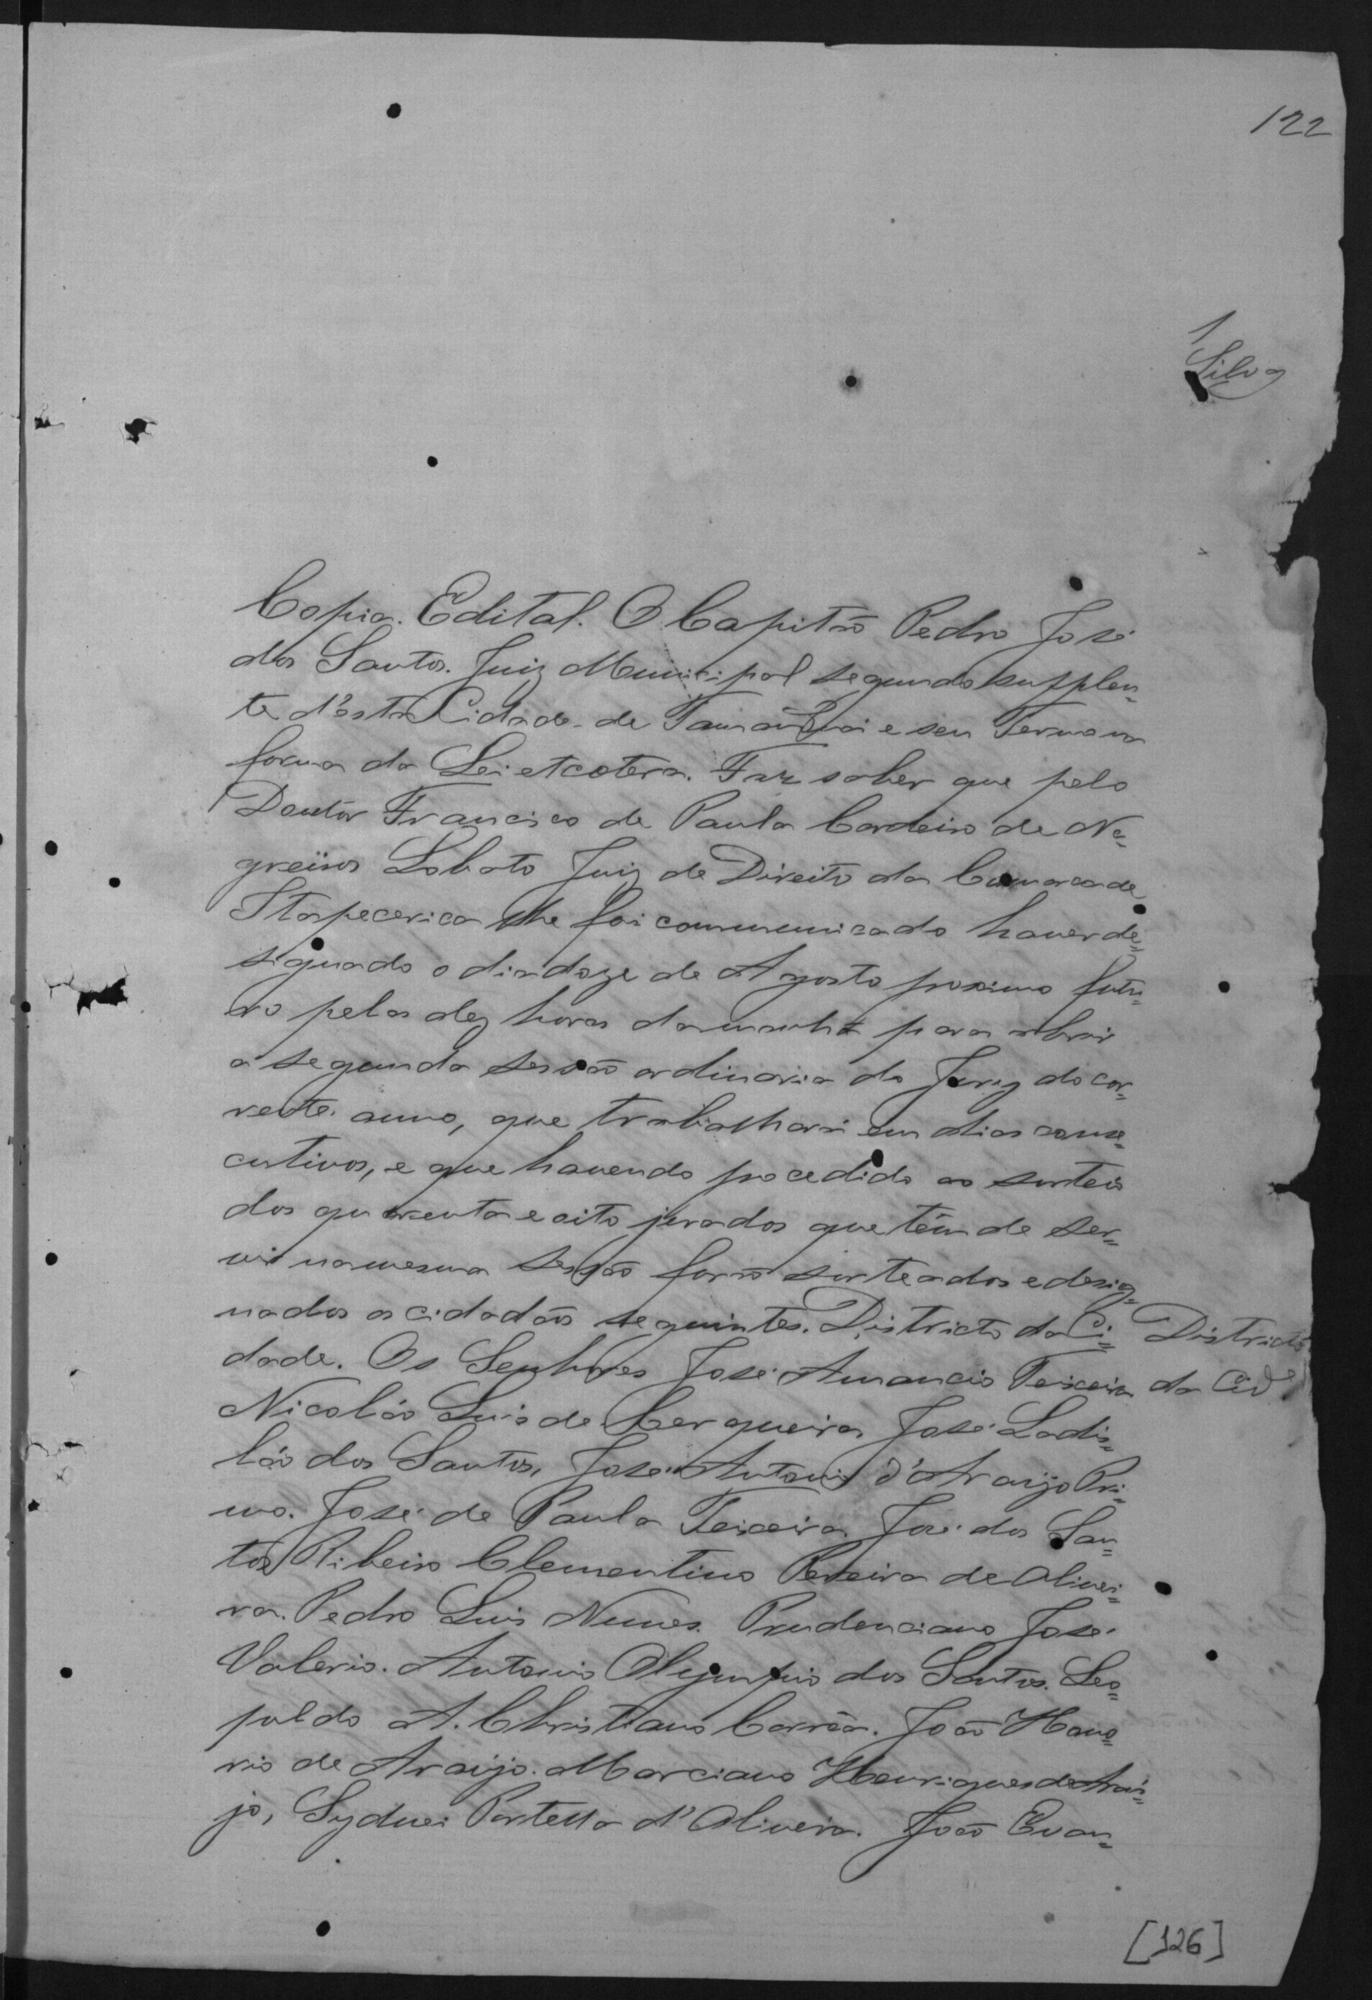 122
1
Silva
Copia. Edital. O Capitão Pedro José
dos Santos. Juiz Municipal segundo supplen=
te d'esta Cidade de Tamanduá e seu Termo na
forma da Lei etcetera. Faz saber que pelo
Doutor Francisco de Paula Cordeiro de Ne=
greiros Lobato Juiz de Direito da Comarca de
Itapecerica lhe foi communicado haver de=
signado o dia doze de Agosto proximo futu=
ro pelas dez horas da manhã para abrir
a segunda sessão ordinaria do Jury do cor=
rente anno, que trabalhará em dias conse=
cutivos, e que havendo procedido ao sorteio
dos quarenta e oito jurados que têm de ser=
vir na mesma sessão forão sorteados e desig=
nados os cidadãos seguintes. Districto da Ci=
Districto
dade. Os Senhores José Amancio Teixeira
da Cide
Nicoláo Luis de Cerqueira José Ladis=
láo dos Santos, José Antonio d'Araujo Pri=
mo. José de Paula Teixeira José dos San=
tos Ribeiro Clementino Pereira de Olivei=
ra. Pedro Luis Nunes. Prudenciano José
Valerio. Antonio Olympio dos Santos. Leo=
poldo A. Christiano Corrêa. João Hono=
rio de Araujo. Marciano Henriques de Arau=
jo, Sydnei Portella d'Oliveira. João Evan=
[126]